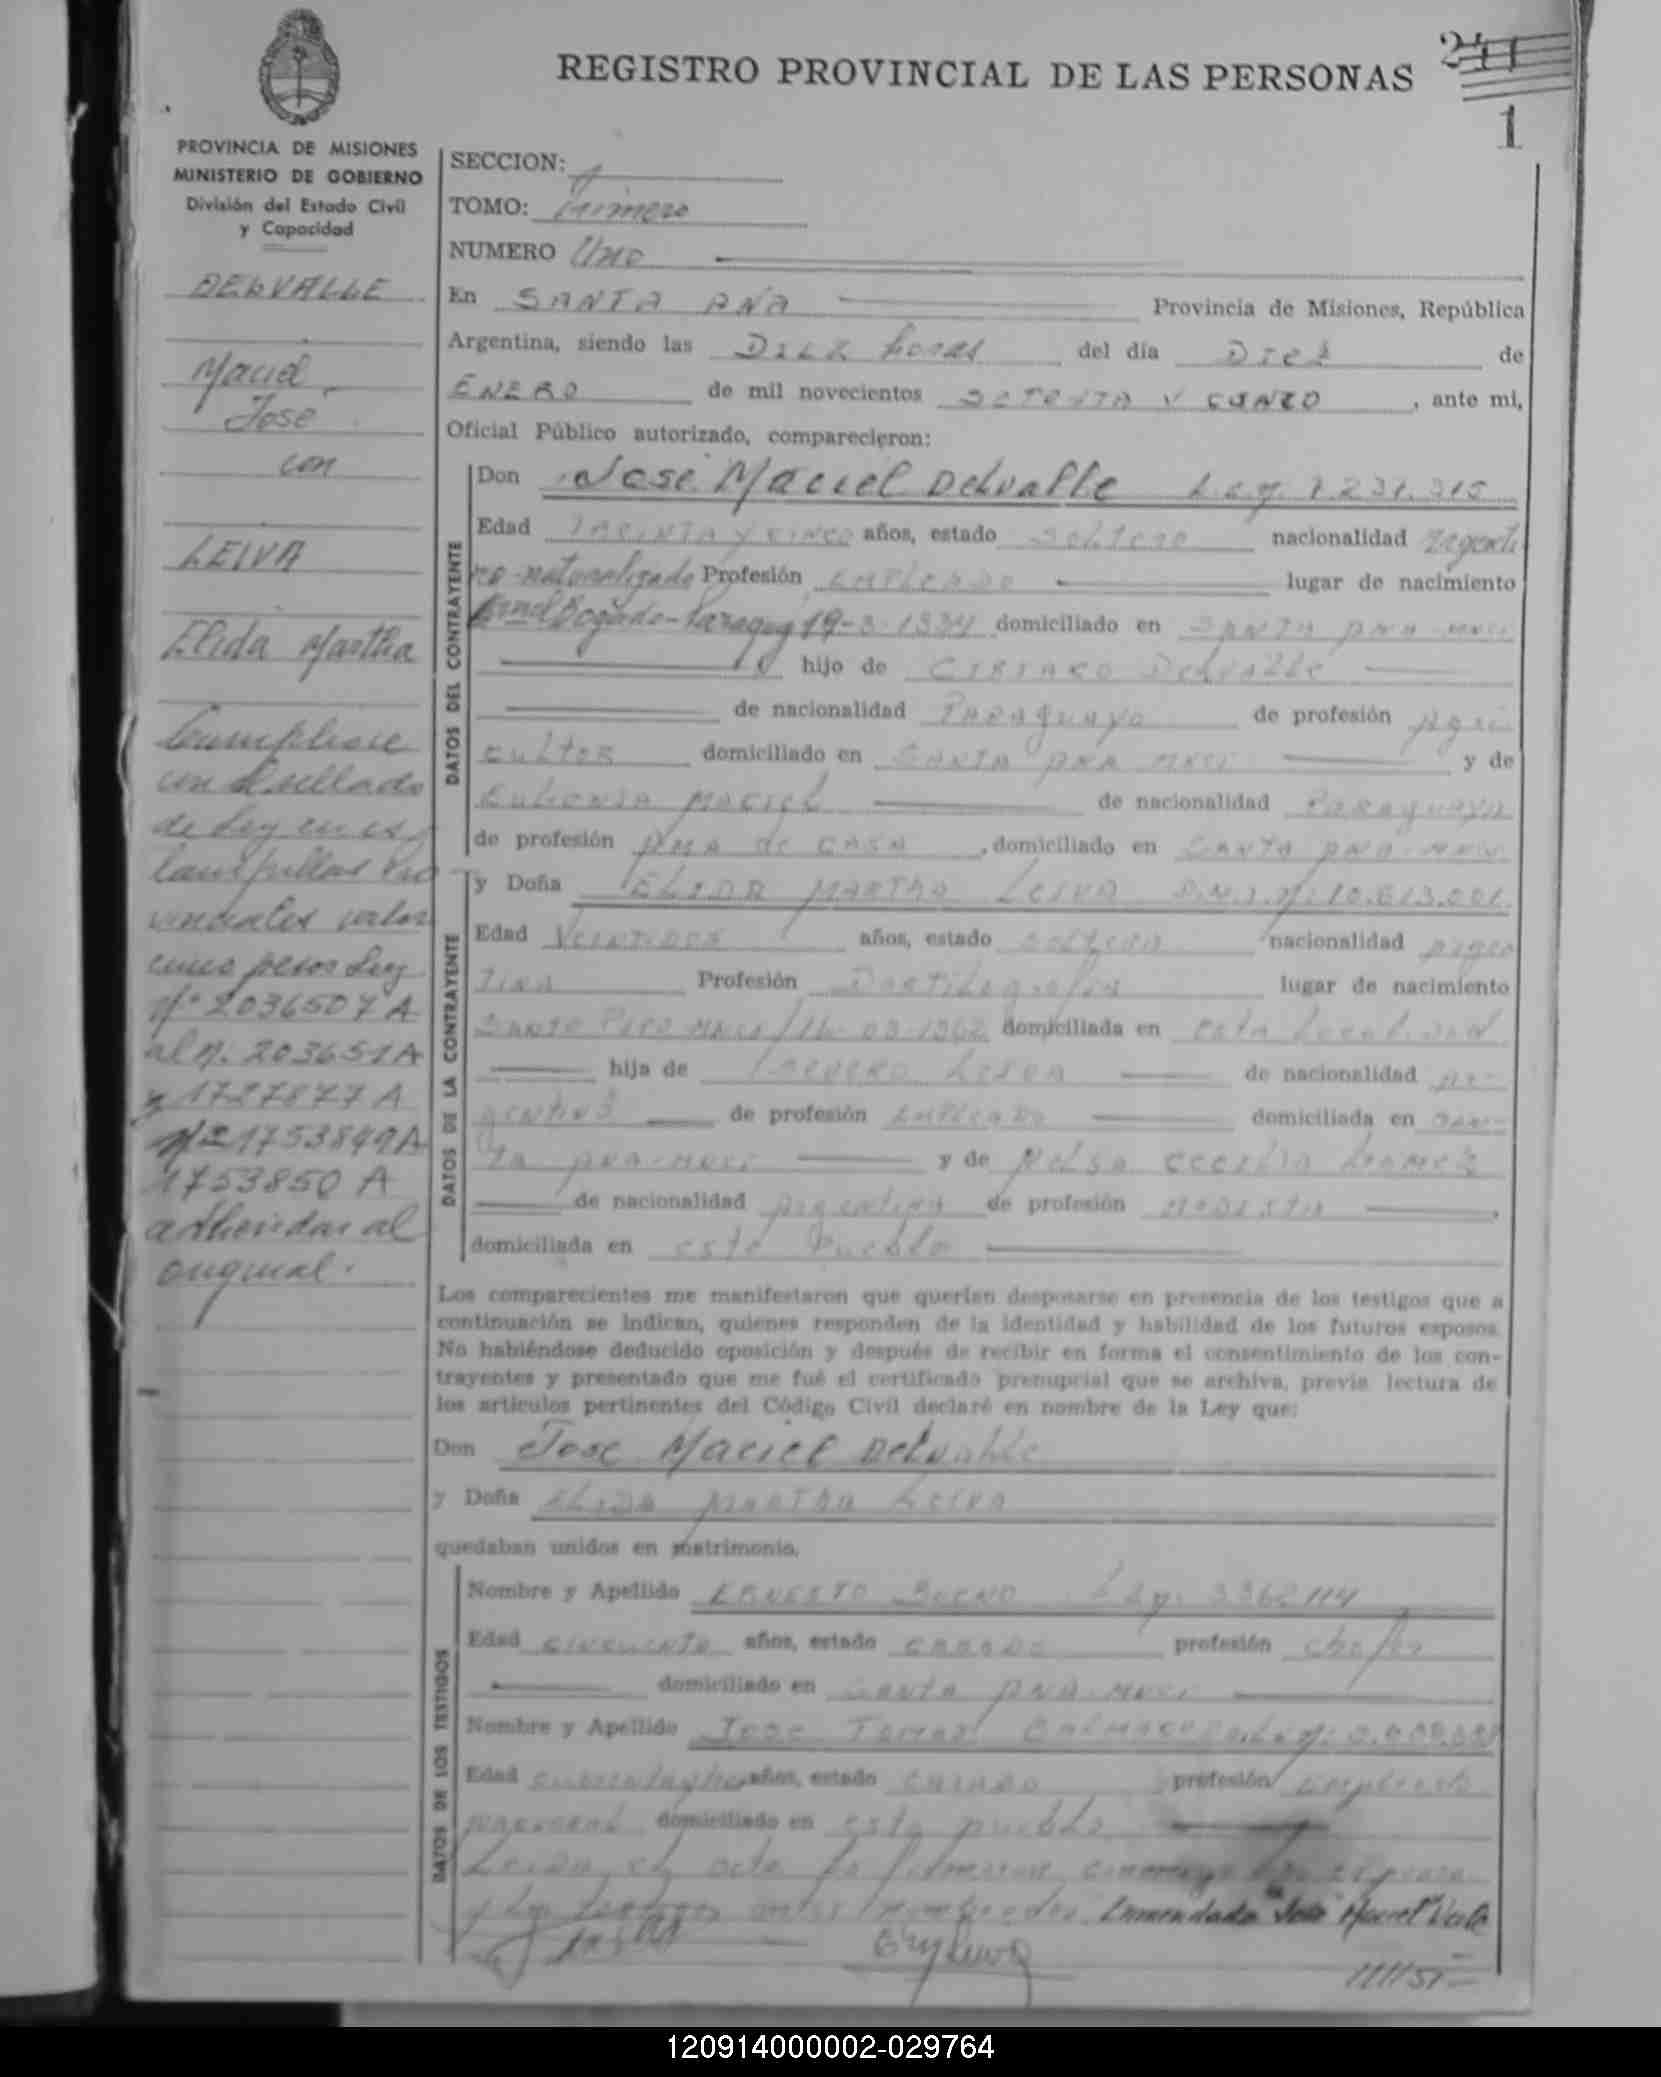 REGISTRO PROVINCIAL DE LAS PERSONAS
241
1
PROVINCIA DE MISIONES
MINISTERIO DE GOBIERNO
División del Estado Civil
y Capacidad
DELVALLE
Maciel
José
con
LEIVA
Elida Martha
Cumplese
con el sellado
de Ley en es
tampillas Pro
vinciales valor
cinco pesos Ley
Nº 2036507 A
al Nº 203651 A
y 1727877 A
Nº 1753849 A
1753850 A
adheridas al
original.
SECCION: 1
TOMO: Primero
NUMERO Uno
En SANTA ANA Provincia de Misiones, República
Argentina, siendo las DIEZ horas del día DIEZ de
ENERO de mil novecientos SETENTA Y CINCO, ante mi,
Oficial Público autorizado, comparecieron:
DATOS DEL CONTRAYENTE
Don José Maciel Delvalle 7.231.315
Edad TREINTA Y CINCO años, estado soltero nacionalidad Argenti
no-naturalizado Profesión EMPLEADO lugar de nacimiento
Cnel Bogado-Paraguay 19-3-1934 domiciliado en SANTA ANA-
hijo de CIRIACO Delvalle
de nacionalidad Paraguaya de profesión Agri
cultor domiciliado en SANTA ANA y de
Eugenia Maciel de nacionalidad Paraguaya
de profesión AMA de CASA, domiciliado en SANTA ANA-
DATOS DE LA CONTRAYENTE
y Doña ELIDA MARTHA LEIVA D.N.I. Nº 10.613.001
Edad Veintidos años, estado soltera nacionalidad Argen
tina Profesión Dactilografa lugar de nacimiento
SANTO PIPO domiciliada en esta Localidad
hija de Severo Leiva de nacionalidad Ar-
gentina de profesión EMPLEADO domiciliada en San-
ta ANA- y de Nelsa Cecilia Gomez
de nacionalidad Argentina de profesión Modista
domiciliada en este Pueblo
Los comparecientes me manifestaron que querían desposarse en presencia de los testigos que a
continuación se indican, quienes responden de la identidad y habilidad de los futuros esposos.
No habiéndose deducido oposición y después de recibir en forma el consentimiento de los con-
trayentes y presentado que me fué el certificado prenupcial que se archiva, previa lectura de
los artículos pertinentes del Código Civil declaré en nombre de la Ley que:
Don José Maciel Delvalle
y Doña ELIDA MARTHA LEIVA
quedaban unidos en matrimonio.
DATOS DE LOS TESTIGOS
Nombre y Apellido ERNESTO BUENO 3362114
Edad cincuenta años, estado casado profesión chofer
domiciliado en SANTA ANA-
Nombre y Apellido Jose Tomas
Edad años, estado casado profesión empleado
domiciliado en este pueblo
Leida el acta la firmaron conmigo los esposos
y los testigos antes nombrados. Enmendado "José Maciel" Vale
120914000002-029764